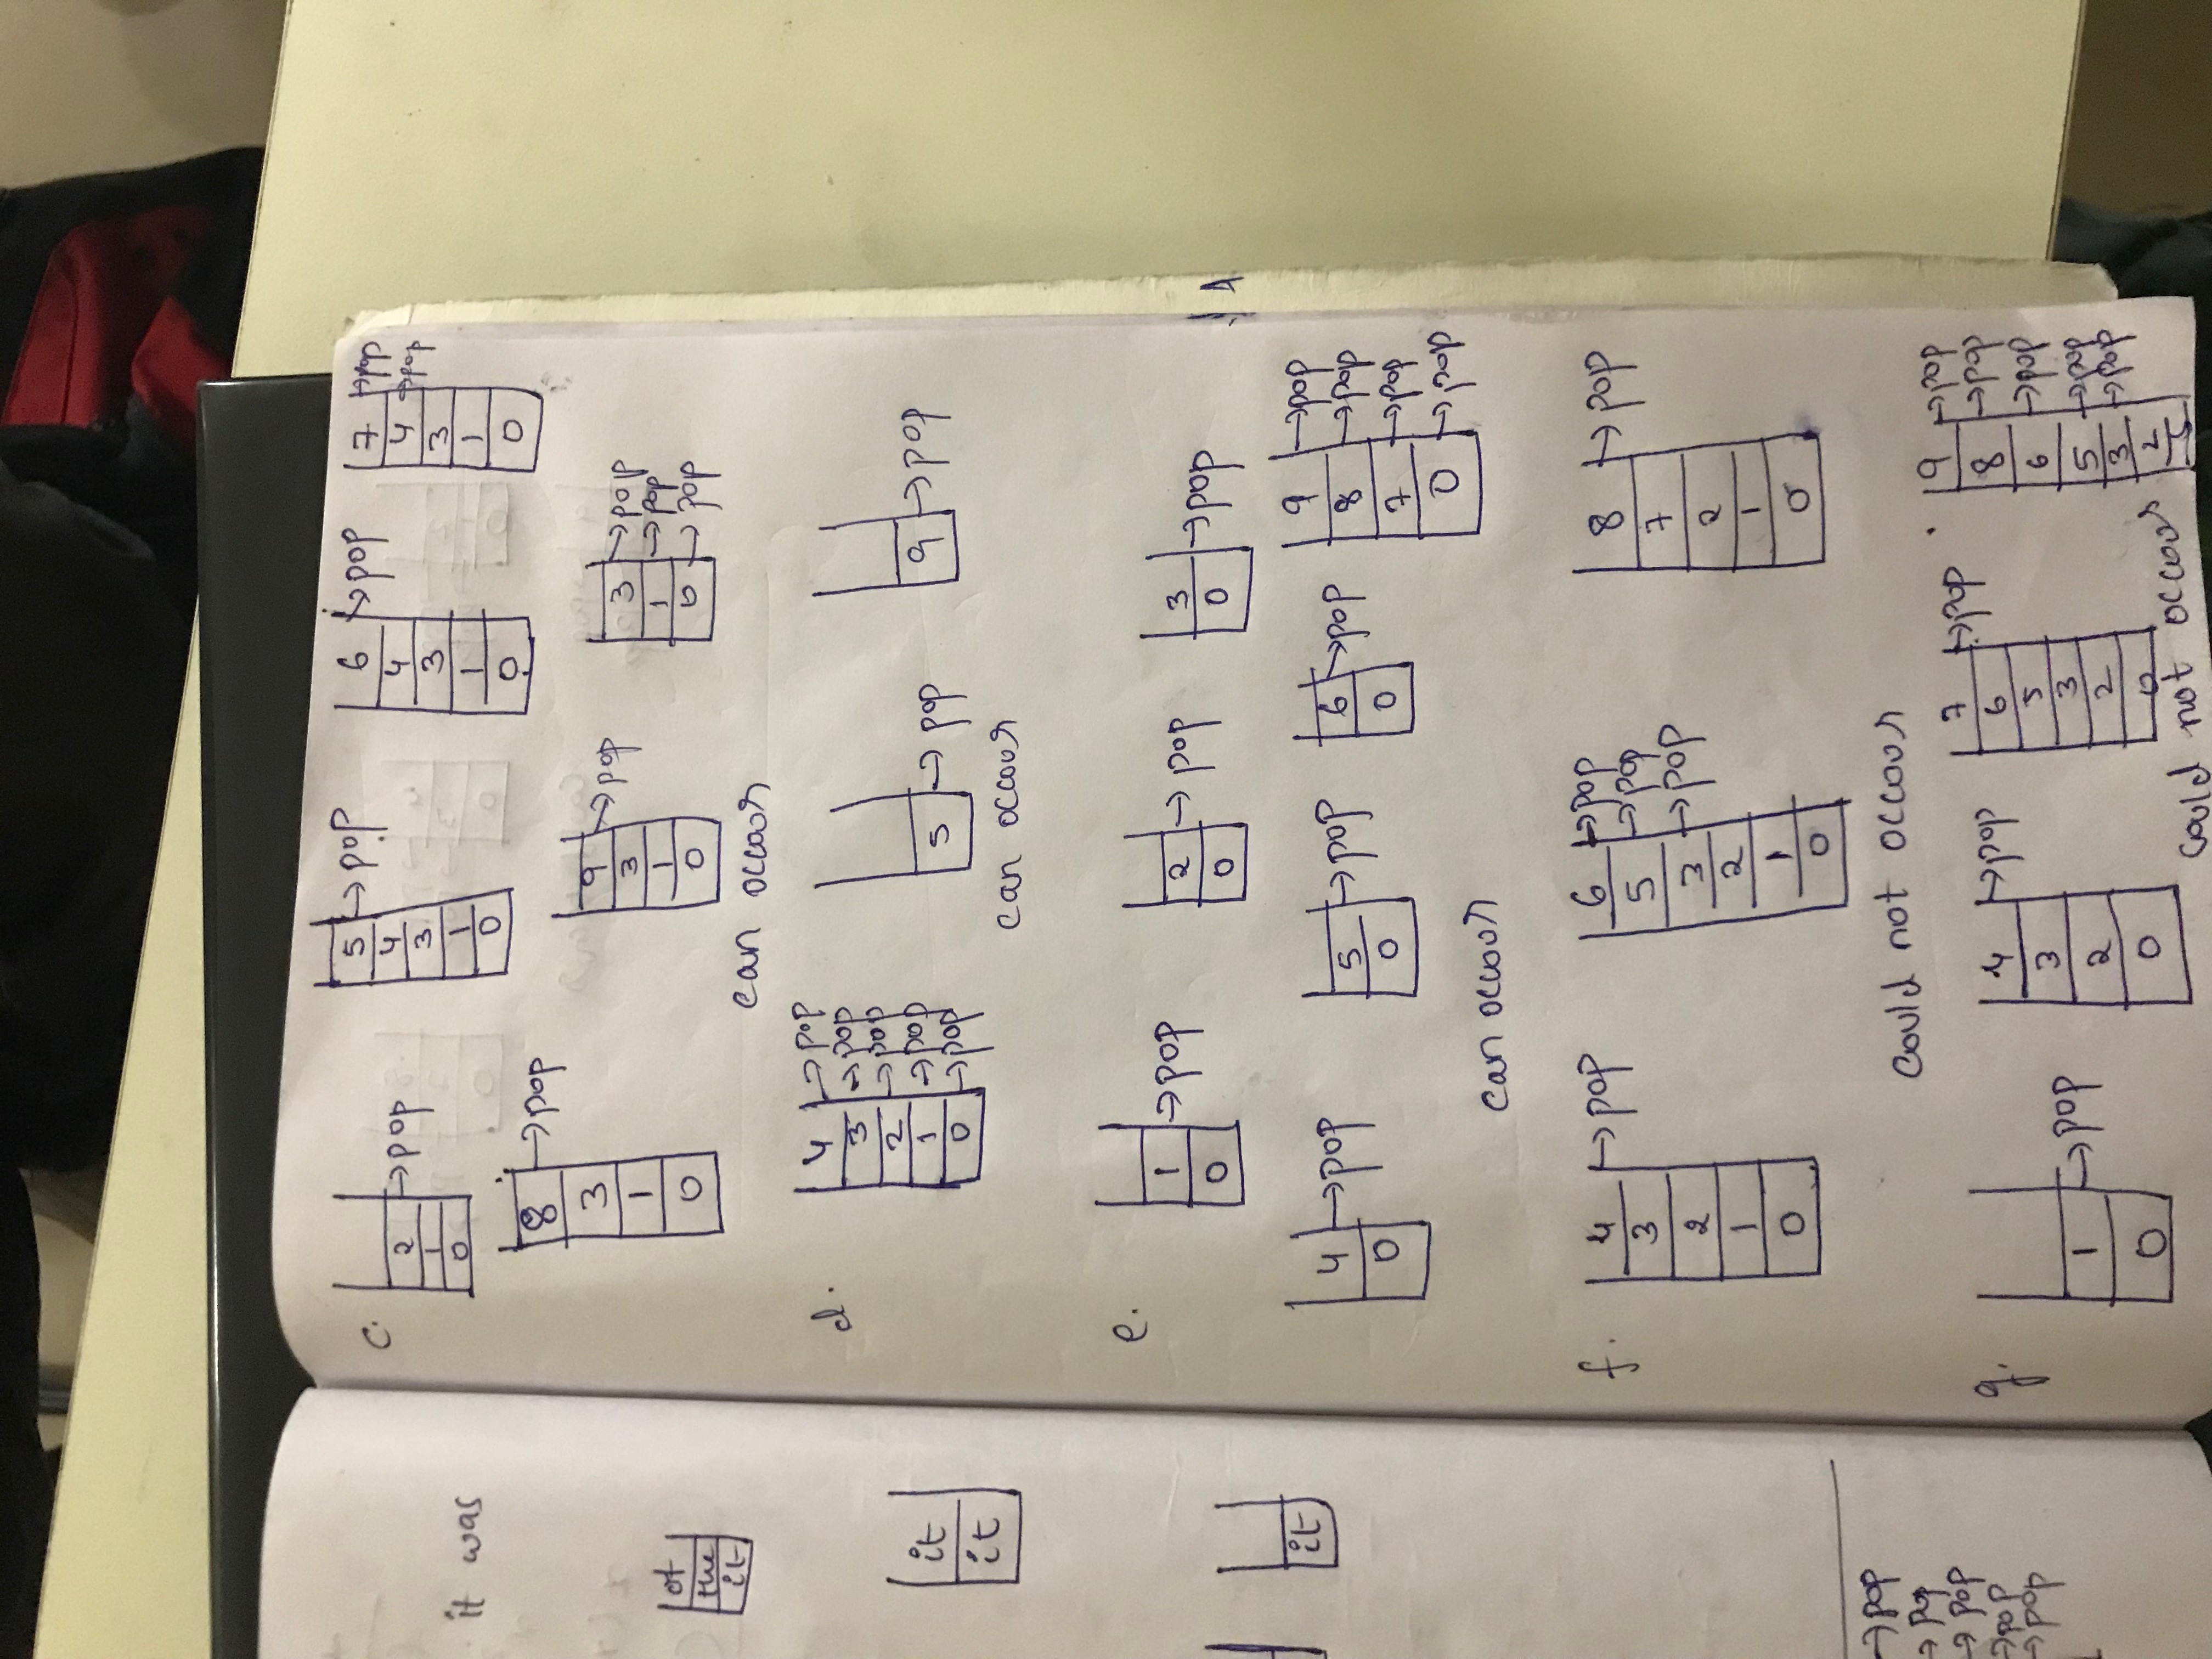 it was
of
the
it
it
it
it
→pop
→pop
→pop
→pop
→pop
c.
2 →pop
1
0
5 →pop
4
3
1
0
6 →pop
4
3
1
0
7 →pop
4 →pop
3
1
0
8 →pop
3
1
0
9 →pop
3
1
0
3 →pop
1 →pop
0 →pop
can occour
d.
4 →pop
3 →pop
2 →pop
1 →pop
0 →pop
5 →pop
9 →pop
can occour
e.
1 →pop
0
2 →pop
0
3 →pop
0
4 →pop
0
5 →pop
0
6 →pop
0
9 →pop
8 →pop
7 →pop
0 →pop
can occour
f.
4 →pop
3
2
1
0
6 →pop
5 →pop
3 →pop
2
1
0
8 →pop
7
2
1
0
Could not occour
g.
1 →pop
0
4 →pop
3
2
0
7 →pop
6
5
3
2
0
9 →pop
8 →pop
6 →pop
5 →pop
3 →pop
2
Could not occour